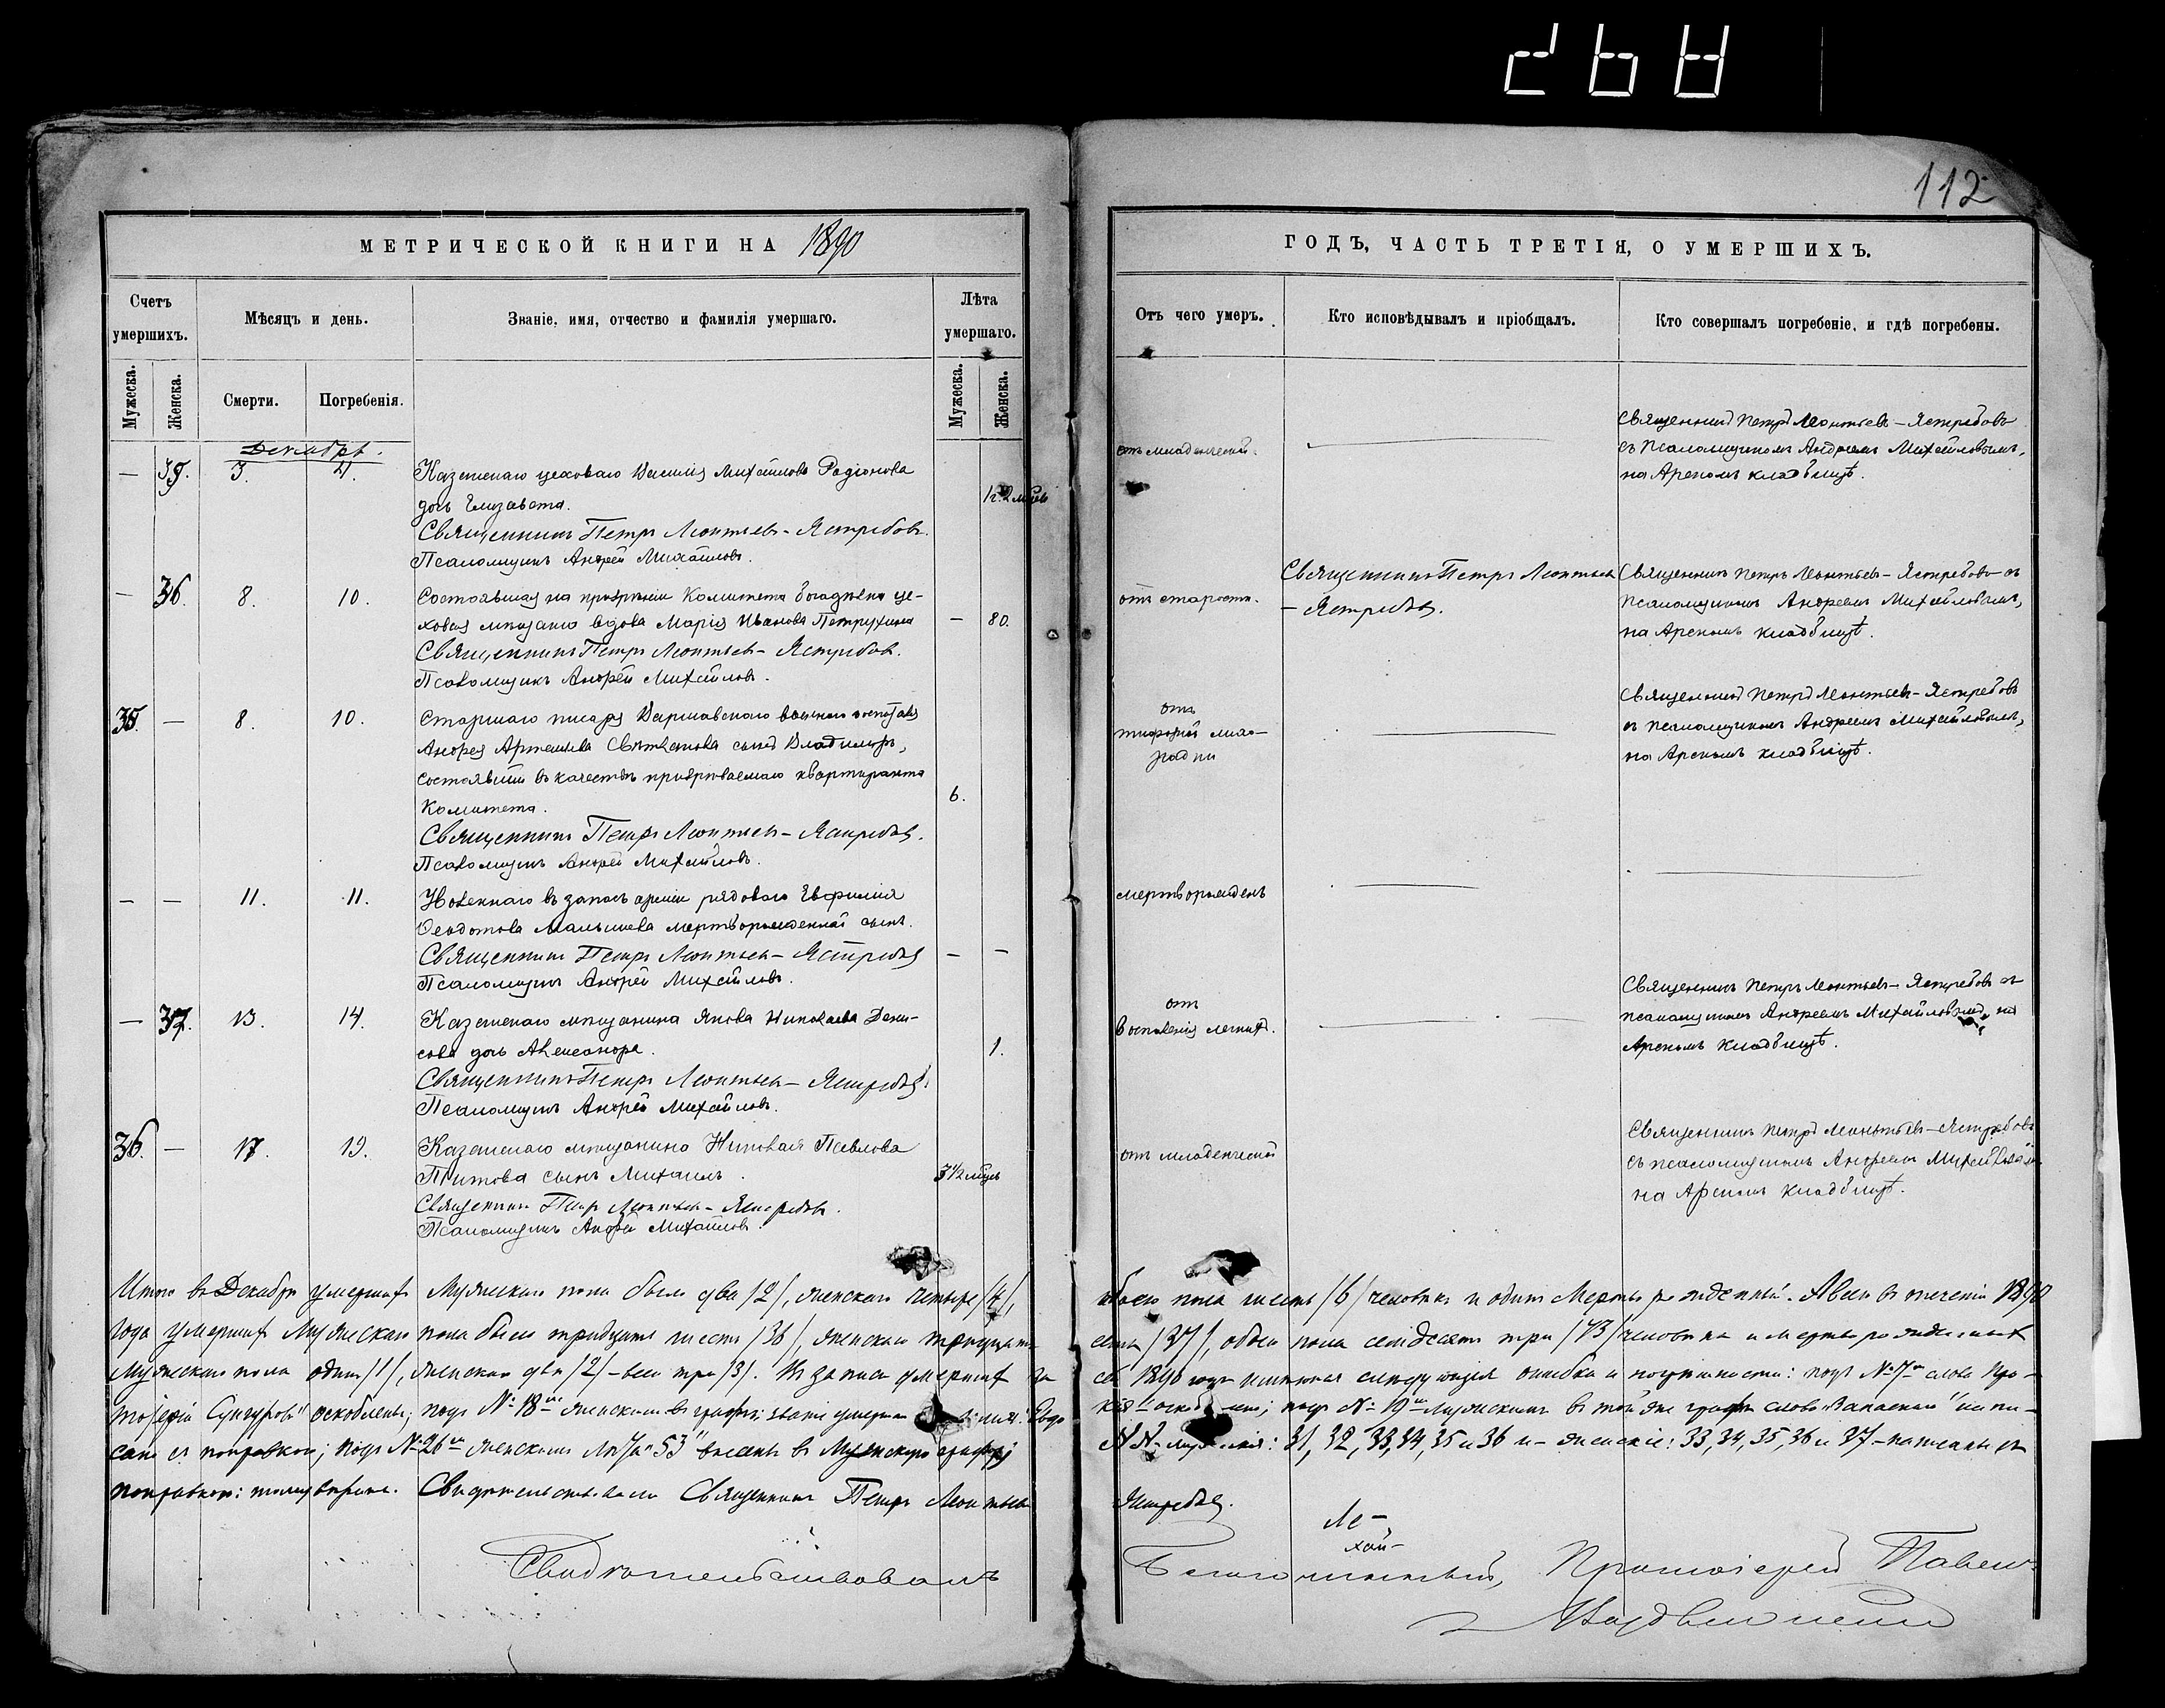 112
МЕТРИЧЕСКОЙ КНИГИ НА 1890
ГОДЪ, ЧАСТЬ ТРЕТІЯ, О УМЕРШИХЪ.
Счетъ умершихъ.
Мѣсяцъ и день.
Званіе, имя, отчество и фамилія умершаго.
Лѣта умершаго.
Отъ чего умеръ.
Кто исповѣдывалъ и пріобщалъ.
Кто совершалъ погребеніе, и гдѣ погребены.
Мужеска.
Женска.
Смерти.
Погребенія.
Мужеска.
Женска.
Декабрь.
— 35. 3. 4.
Казанскаго цеховаго Василія Михайлова Родіонова
дочь Елизавета.
Священникъ Петръ Леонтьев-Ястребовъ.
Псаломщикъ Андрей Михайловъ.
отъ младенческой.
Священникъ Петръ Леонтьевъ-Ястребовъ
съ псаломщикомъ Андреемъ Михайловымъ,
на Арскомъ кладбищѣ.
— 36. 8. 10.
Состоявшая на призрѣніи Комитета богадѣлки це-
ховая вдова Марія Иванова Петрухина
— 80.
Священникъ Петръ Леонтьев-Ястребов.
Псаломщикъ Андрей Михайловъ.
отъ старости.
Священникъ Петръ Леонтьев
-Ястребов.
Священникъ Петръ Леонтьевъ-Ястребовъ съ
псаломщикомъ Андреемъ Михайловымъ,
на Арскомъ кладбищѣ.
35. — 8. 10.
Старшаго писаря Варшавскаго военнаго госпиталя
Андрея Артемьева сынъ Владиміръ,
состоявшій въ качествѣ призрѣваемаго квартиранта
Комитета.
6.
Священникъ Петръ Леонтьев-Ястребов.
Псаломщикъ Андрей Михайловъ.
отъ
Священникъ Петръ Леонтьевъ-Ястребовъ
съ псаломщикомъ Андреемъ Михайловымъ,
на Арскомъ кладбищѣ.
— — 11. 11.
въ запасъ арміи рядоваго Евфимія
Ѳеодотова Малышева мертворожденный сынъ.
Священникъ Петръ Леонтьев-Ястребов
— —
Псаломщикъ Андрей Михайловъ.
мертворожденъ
— 37. 13. 14.
Казанскаго мѣщанина Якова Николаева Дени-
сова дочь Александра.
1.
Священникъ Петръ Леонтьев-Ястребов.
Псаломщикъ Андрей Михайловъ.
отъ
воспаленія легкихъ.
Священникъ Петръ Леонтьевъ-Ястребовъ съ
псаломщикомъ Андреемъ Михайловымъ, на
Арскомъ кладбищѣ.
36. — 17. 19.
Казанскаго мѣщанина Николая Павлова
Титова сынъ Михаилъ.
3 1/2 мѣсяц
Священникъ Петръ Леонтьев-Ястребов.
Псаломщикъ Андрей Михайловъ.
отъ младенческой
Священникъ Петръ Леонтьевъ-Ястребовъ
съ псаломщикомъ Андреемъ Михайловымъ
на Арскомъ кладбищѣ.
Итого въ Декабрѣ умершихъ Мужескаго пола было два /2/, женскаго четыре /4/, обоего пола шесть /6/ человѣкъ и одинъ Мертворожденный. А всего въ теченіи 1890
года умершихъ Мужескаго пола было тридцать шесть /36/, женскаго тридцать семь /37/, обоего пола семдесятъ три /73/ человѣка и мертворожденныхъ
Мужескаго пола одинъ /1/, женскаго два /2/ - всего три /3/. Въ записи умершихъ за сей 1890 годъ имѣются слѣдующія ошибки и подчистки: подъ № 7м слова Про-
тоіерей оскоблены; подъ № 18м женскимъ въ графѣ: званіе подъ № 19м мужескимъ въ той же графѣ слово "Запаснаго" напи-
сано съ поправкою; подъ № 26м женскимъ лѣта "53" внесены въ Мужескую графу; №№ мужескіе: 31, 32, 33, 34, 35 и 36 и женскіе: 33, 34, 35, 36 и 37 - написаны съ
поправкою: тому вѣрить. Свидѣтельствовали Священникъ Петръ Леонтьев Ястребов.
Ми-
хай-
Свидѣтельствовалъ Благочинный, Протоіерей Павелъ